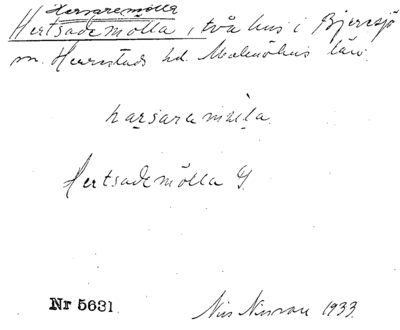 Hersaremölla
Hertsademölla, två hus i Bjeresjö
sn. Herrestads hd. Malmöhus län.
harsaremöla
Hertsademölla G.
Nr 5631
Nils Nilsson 1933.